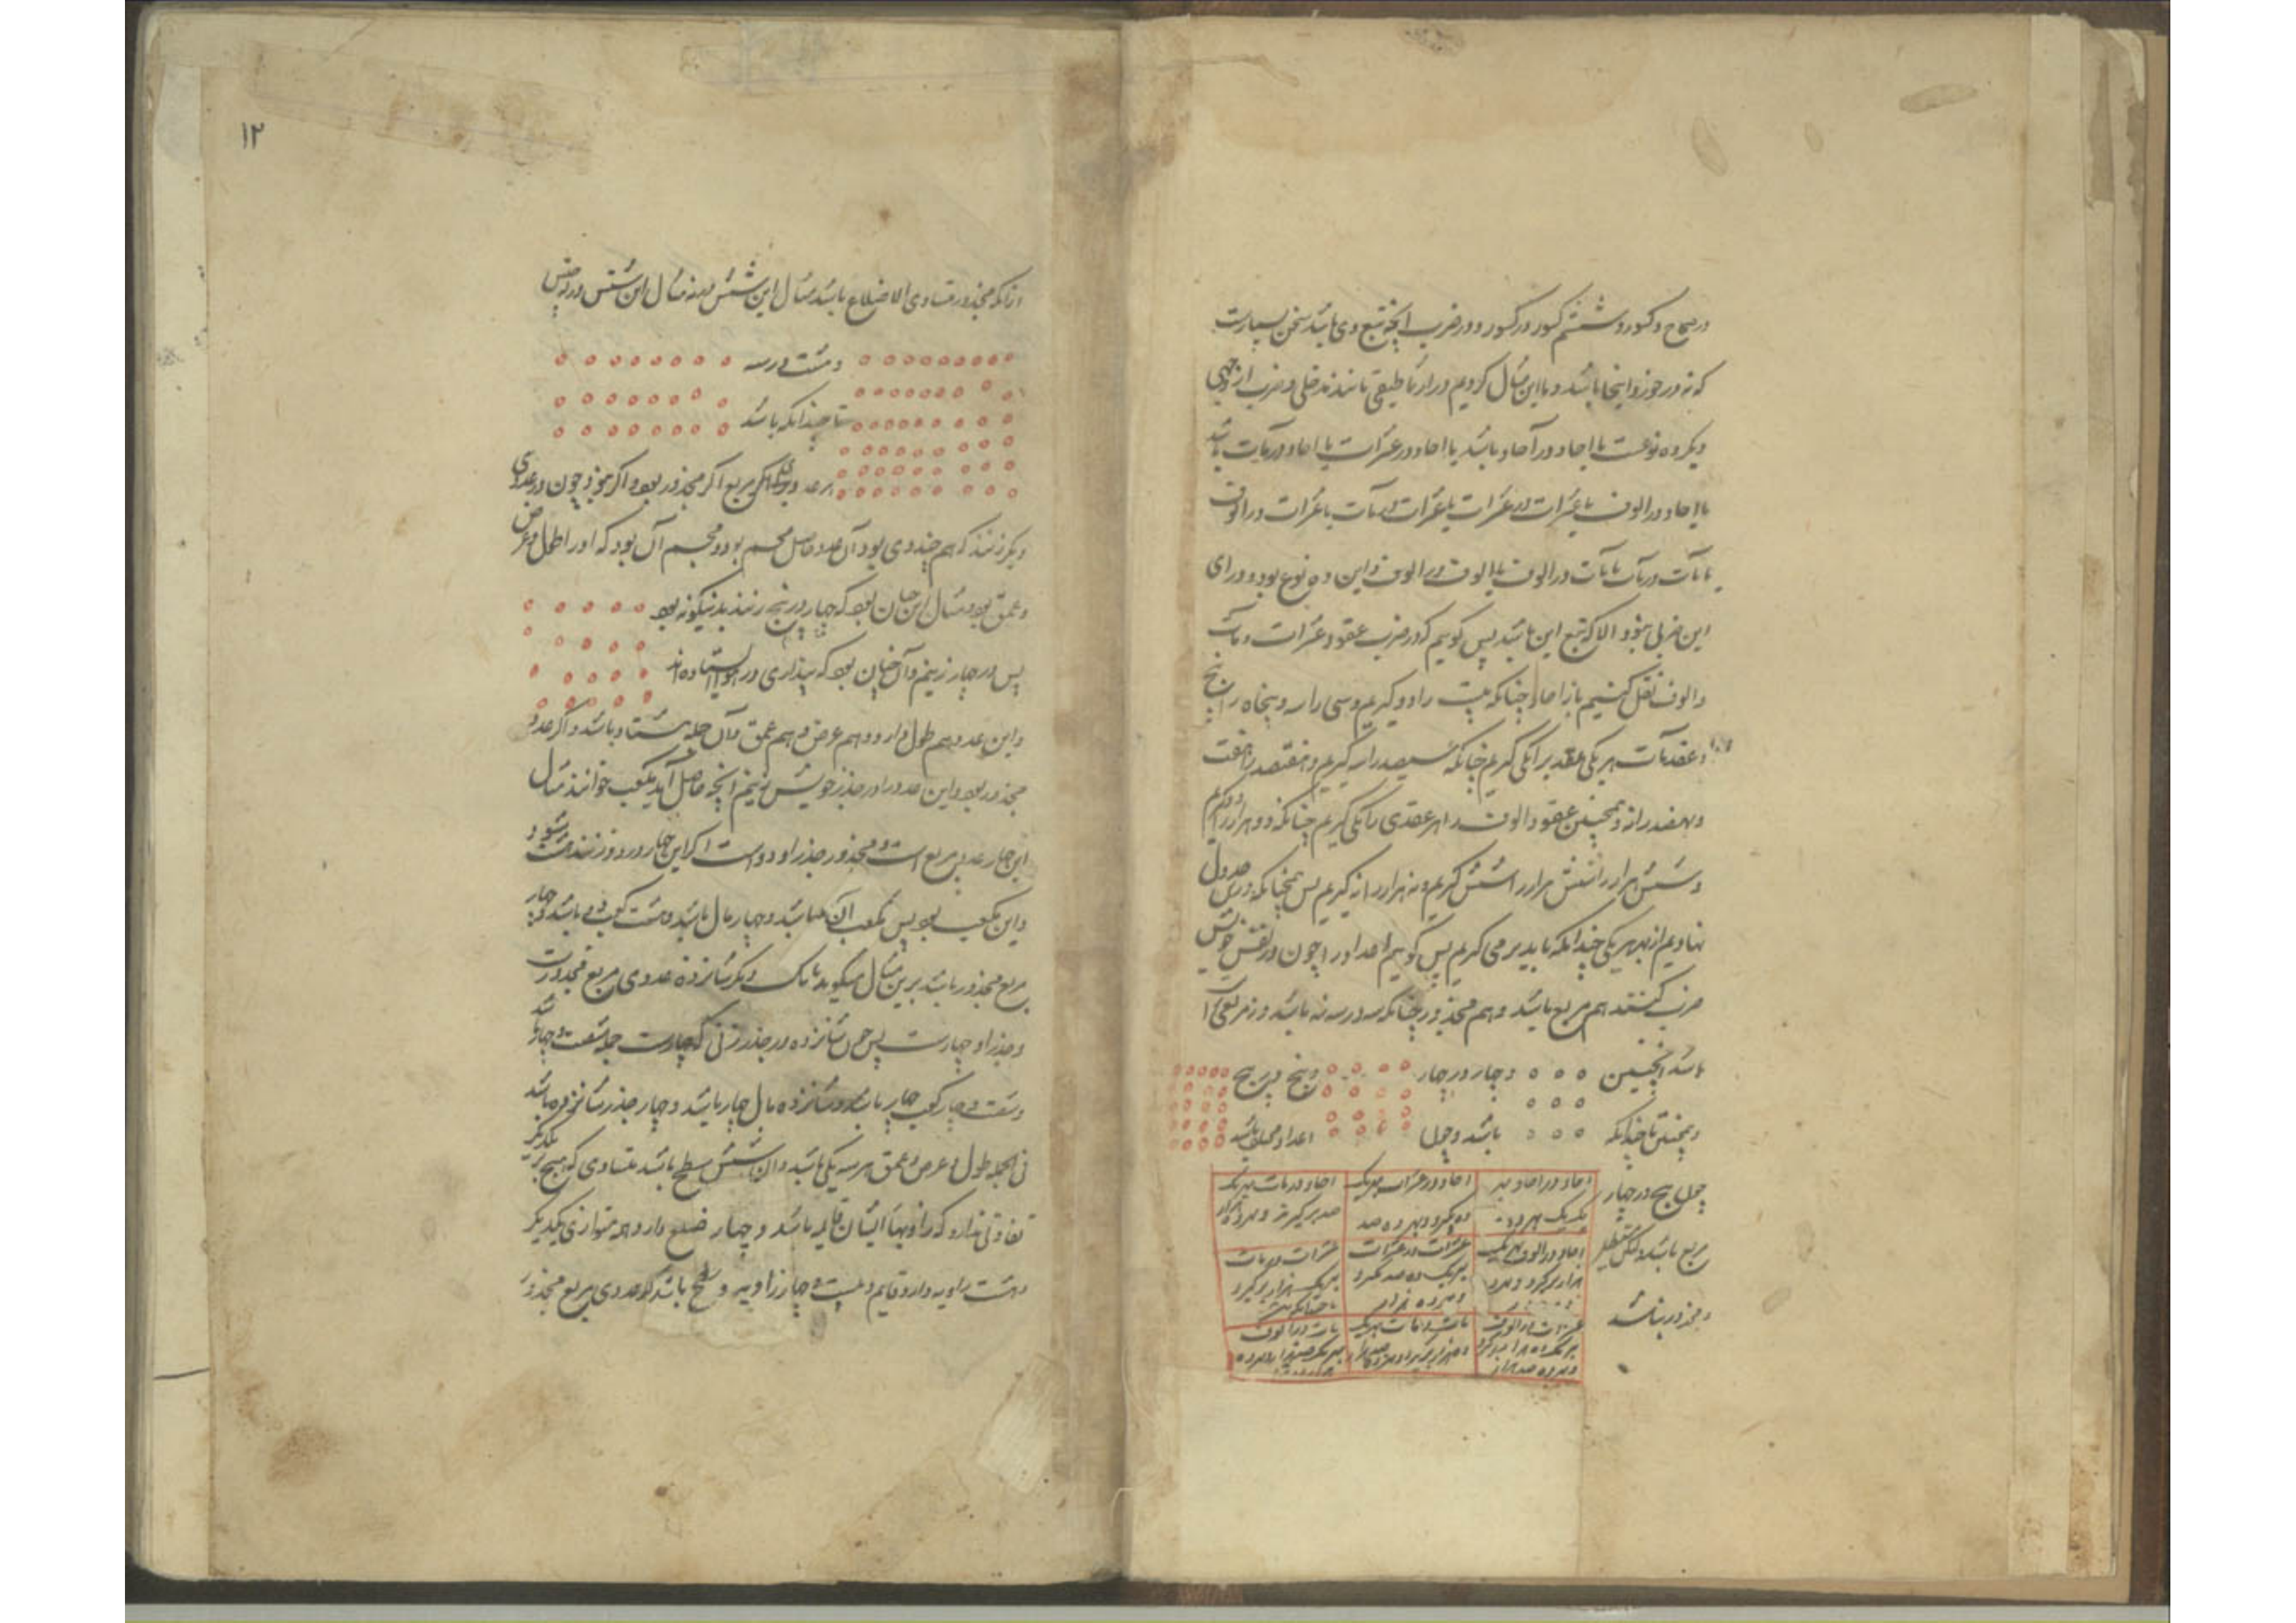 در صحاح و کسور و ششم کسور در کسور و در ضرب آنچه تبع وی باشد سخن بسیارست
که نه در خورد اینجا باشد و ما این مثال کردیم و را
دیگر ده نوعست یا احاد در آحاد باشد یا احاد در عشرات یا احاد در مآت باشد
یا احاد در الوف یا عشرات در عشرات یا عشرات در مآت یا عشرات در الوف
یا مآت در مآت یا مآت در الوف یا الوف در الوف و این ده نوع بود و ورای
این ضربی نبود الا که تبع این باشد پس گوییم که در ضرب عقود عشرات و مآت
و الوف نقل کنیم باز احاد چنانکه بیست را دو گیریم و سی را سه و پنجاه را پنج
و عقد مآت هر یکی عقد بر یکی گیریم چنانکه سیصد را سه گیریم و هفتصد را هفت
و نهصد را نه و همچنین عقود الوف را هر عقدی را یکی گیریم چنانکه دو هزار را دو گیریم
و شش هزار را شش گیریم و نه هزار را نه گیریم پس همچنانکه درین جدول
نهادیم از بهر هر یکی چندانکه باید بر می گیریم پس گوییم احاد را چون در نفس خویش
ضرب کنند هم مربع باشد و هم مجذور چنانکه سه در سه نه باشد و نه مربعی
باشد اینچنین و چهار در چهار و پنج در پنج
و همچنین تا چندانکه باشد و چون اعداد مختلف باشد
چون پنج در چهار
مربع باشد و لکن مستطیل
و مجذور نباشد
احاد در احاد هر احاد در عشرات هر یک احاد در مآت هر یک
یک یک ده گیرد و هر ده صد صد بر گیرد و هر ده هزار
احاد در الوف هر یک عشرات در عشرات عشرات در مآت
هزار بر گیرد و هر ده هر یک صد گیرد هر یک هزار بر گیرد
و هر ده هزار
عشرات در الوف مآت در مآت هر یک مآت در الوف
هر یک ده هزار بر گیرد ده هزار بر گیرد و هر ده صد هزار هر یک صد هزار و هر ده
و هر ده صد هزار
۱۲
از آنکه مجذور متساوی الاضلاع باشد مثال این شش در نه مثال این شش در
و هشت در سه
تا چندانکه باشد
هر عددی مربع اگر مجذور بود و اگر نبود چون در عددی
دیگر زنند که هم چند وی بود آن عدد حاصل مجسم بود و مجسم آن بود که او را طول و عرض
و عمق بود و مثال این چنان بود که چهار در پنج زنند بدینگونه بود
پس در چهار زنیم و آن چنان بود که پنداری در هوا ایستاده اند
و این عدد هم طول دارد و هم عرض و هم عمق و آن جمله هشتاد باشد و اگر عدد
مجذور بود و این عدد را در جذر خویش زنیم آنچه حاصل آید مکعب خوانند مثال
این چهار عددی مربع است و مجذور و جذر او دو است اگر این چهار در دو زنند هشت شود
و این مکعب بود پس مکعب آن باشد و چهار مال باشد و هشت کعب وی باشد و چهار
مربع مجذور باشد برین مثال میگوید تا یک دیگر شانزده عددی مربع مجذورست
و جذر او چهارست پس چون شانزده در جذر زنی که چهارست جمله شصت و چهار باشد
و شصت و چهار کعب چهار باشد و شانزده مال چهار باشد و چهار جذر شانزده باشد
فی الجمله طول و عرض و عمق هر سه یکی باشد و آن شش سطح باشد متساوی که هیچ بر یکدیگر
تفاوتی ندارد که زاویهاء ایشان قایمه باشد و چهار ضلع دارد همه متوازی یکدیگر
و هشت زاویه دارد قایم و بیست و چهار زاویه و سطح باشد که عددی مربع مجذور